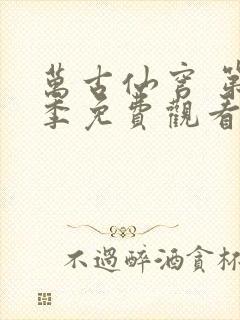 萬古仙穹 第
季免費觀看
不過醉酒貪杯